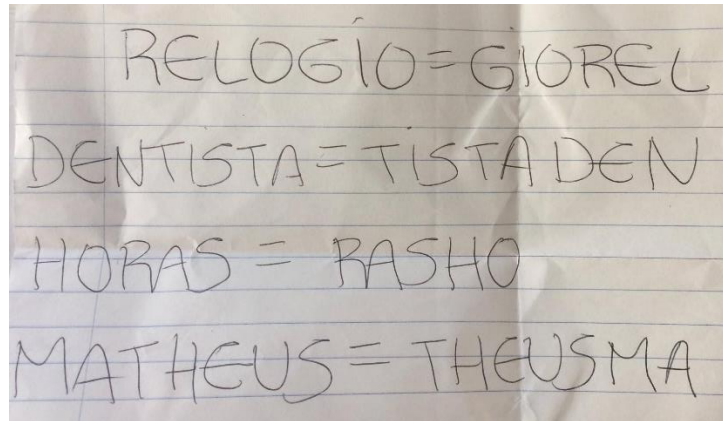 RELOGIO=GIOREL
DENTISTA=TISTADEN
HORAS = RASHO
MATHEUS=THEUSMA